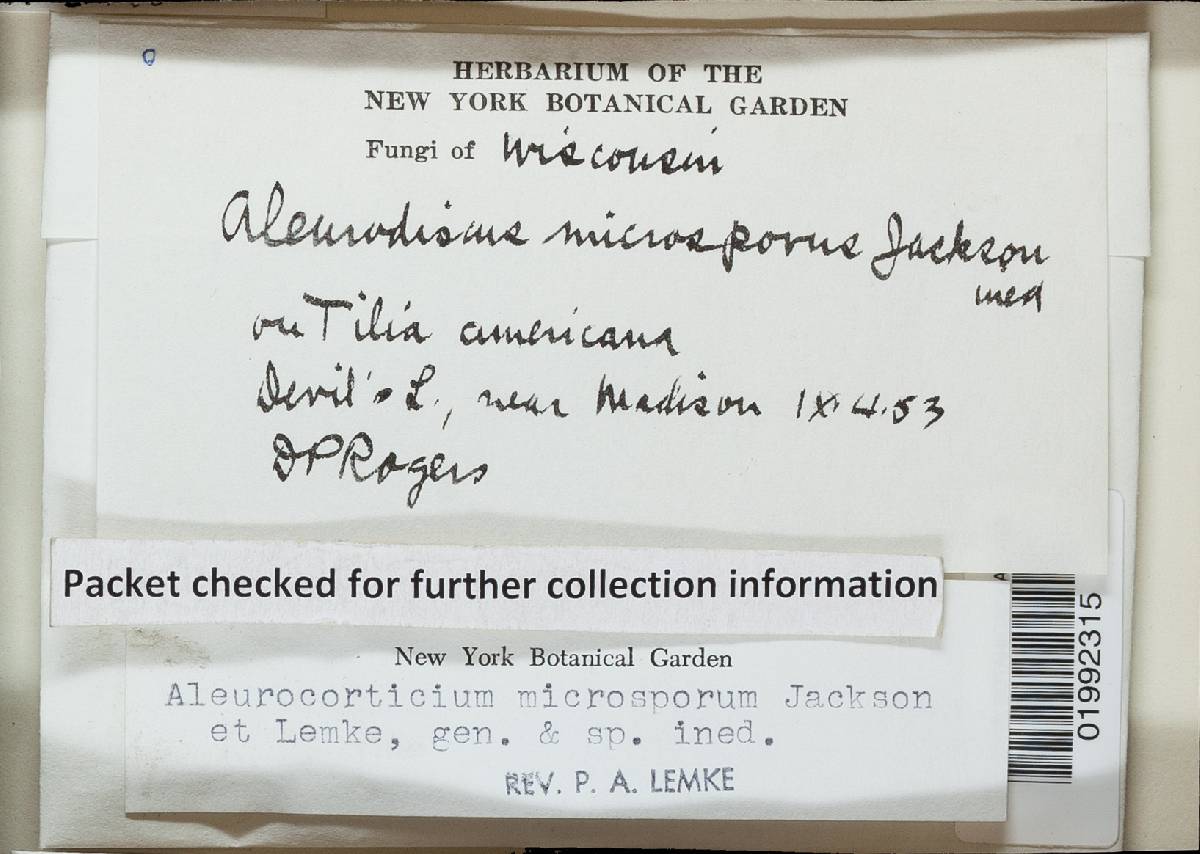 HERBARIUM OF THE
NEW YORK BOTANICAL GARDEN
Fungi of Wisconsin
Aleurodiscus microsporus Jackson
ined
on Tilia americana
Devil's L., near Madison IX.4.53
DPRogers
Packet checked for further collection information
New York Botanical Garden
Aleurocorticium microsporum Jackson
et Lemke, gen. & sp. ined.
REV. P. A. LEMKE
01992315